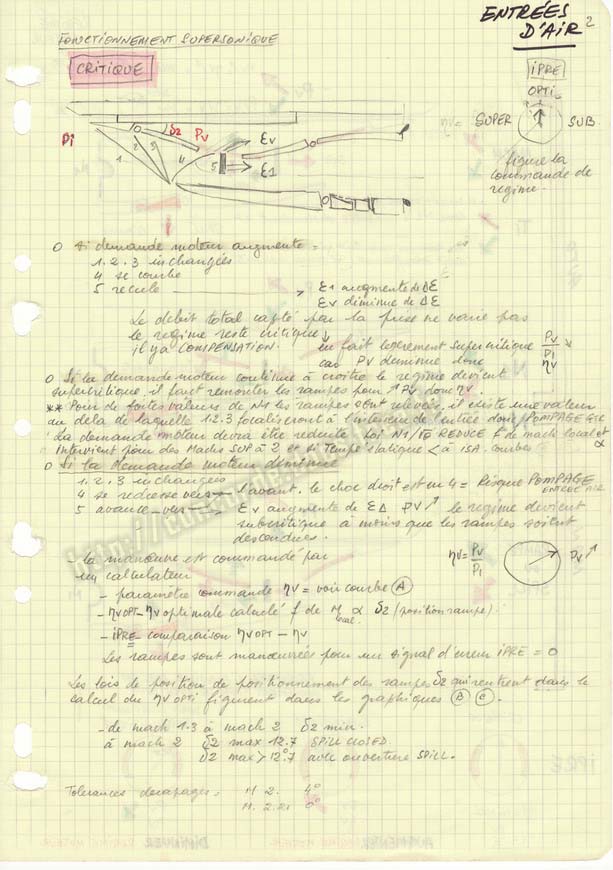 ENTRÉES
D'AIR 2
FONCTIONNEMENT SUPERSONIQUE
CRITIQUE
iPRE
OPTI
ηv= SUPER SUB.
figure la
commande de
regime.
Pi δ2 Pv Ev
1 2 3 4 5 E1
o Si demande moteur augmente =
1.2.3 inchangées
4 se courbe
5 recule → E1 augmente de ΔE
Ev diminue de ΔE
Le debit total capté par la prise ne varie pas
le regime reste critique
il y a COMPENSATION. en fait legerement supercritique Pv/P1
car Pv diminue donc ηv
o Si la demande moteur continue à croitre le regime devient
supercritique, il faut remonter les rampes pour ↑ Pv donc ηv.
** Pour de fortes valeurs de N1 les rampes sont relevées, il existe une valeur
au dela de laquelle 1.2.3 focaliseront à l'interieur de l'entrée donc POMPAGE
La demande moteur devra être reduite Loi N1/√θ REDUCE f de mach local et α
Intervient pour des Machs SUP à 2 et si Temp statique < à ISA. courbes
o Si la demande moteur diminue
1.2.3 inchangées
4 se redresse vers l'avant. le choc droit est en 4 = Risque POMPAGE
ENTREE AIR
5 avance vers Ev augmente de EΔ PV ↑ le regime devient
subcritique à moins que les rampes soient
descendues.
- la manoeuvre est commandé par
un calculateur
ηv= Pv/P1 Pv ↑
- paramètre commande ηv = voir courbe A
- ηv OPT - ηv optimale calculé f de M local α δ2 (position rampe).
- iPRE = comparaison ηv OPT - ηv
Les rampes sont manoeuvrées pour un signal d'erreur iPRE = 0
Les lois de position de positionnement des rampes δ2 qui rentrent dans le
calcul du ηv OPTI figurent dans les graphiques B C.
- de mach 1.3 à mach 2 δ2 min.
à mach 2 δ2 max 12.7 SPILL CLOSED.
δ2 max > 12°7 avec ouverture SPILL.
Tolerances derapages = M 2. 4°
M. 2.21 0°
iPRE